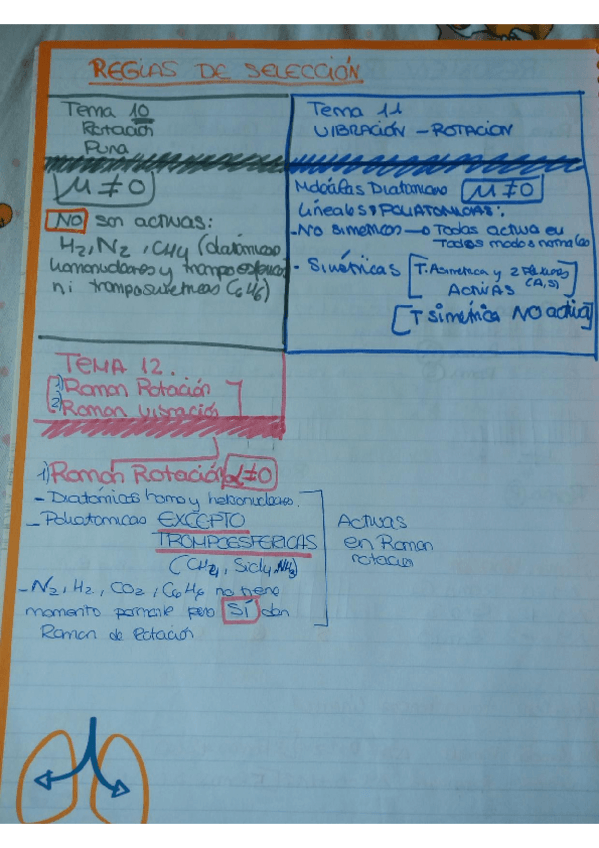 REGLAS DE SELECCIÓN
Tema 10
Rotación
Pura
μ ≠ 0
NO son activas:
H2, N2, CH4 (diatómicas
homonucleares y trompo esféricas
ni trompo simétricas (C6H6)
Tema 11
VIBRACIÓN - ROTACION
Moléculas Diatomicas μ ≠ 0
Lineales POLIATOMICAS:
- No simetricas → Todas activa en
Todos modos normales
- Simétricas [T. Asimetrica y 2 Flexiones
(A, S)
ACTIVAS]
[T simétrica NO activa]
TEMA 12.
1) Raman Rotación
2) Raman Vibración
1) Raman Rotación α≠0
- Diatómicas homo y heteronucleares.
- Poliatomicas EXCEPTO
TROMPOESFERICAS
(CH4, SiCl4, NH3)
- N2, H2, CO2, C6H6 no tiene
momento permante pero SÍ dan
Raman de Rotación
Activas
en Raman
rotación